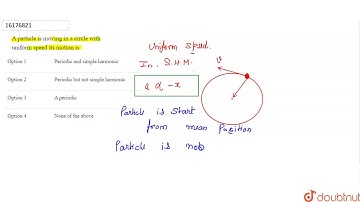 16176821
A particle is moving in a circle with
uniform speed its motion is
Option 1 Periodic and simple harmonic
Option 2 Periodic but not simple harmonic
Option 3 A periodic
Option 4 None of the above
Uniform Speed.
In. S.H.M.
a α -x
v
Particle is start
from mean Position
Particle is note
doubtnut